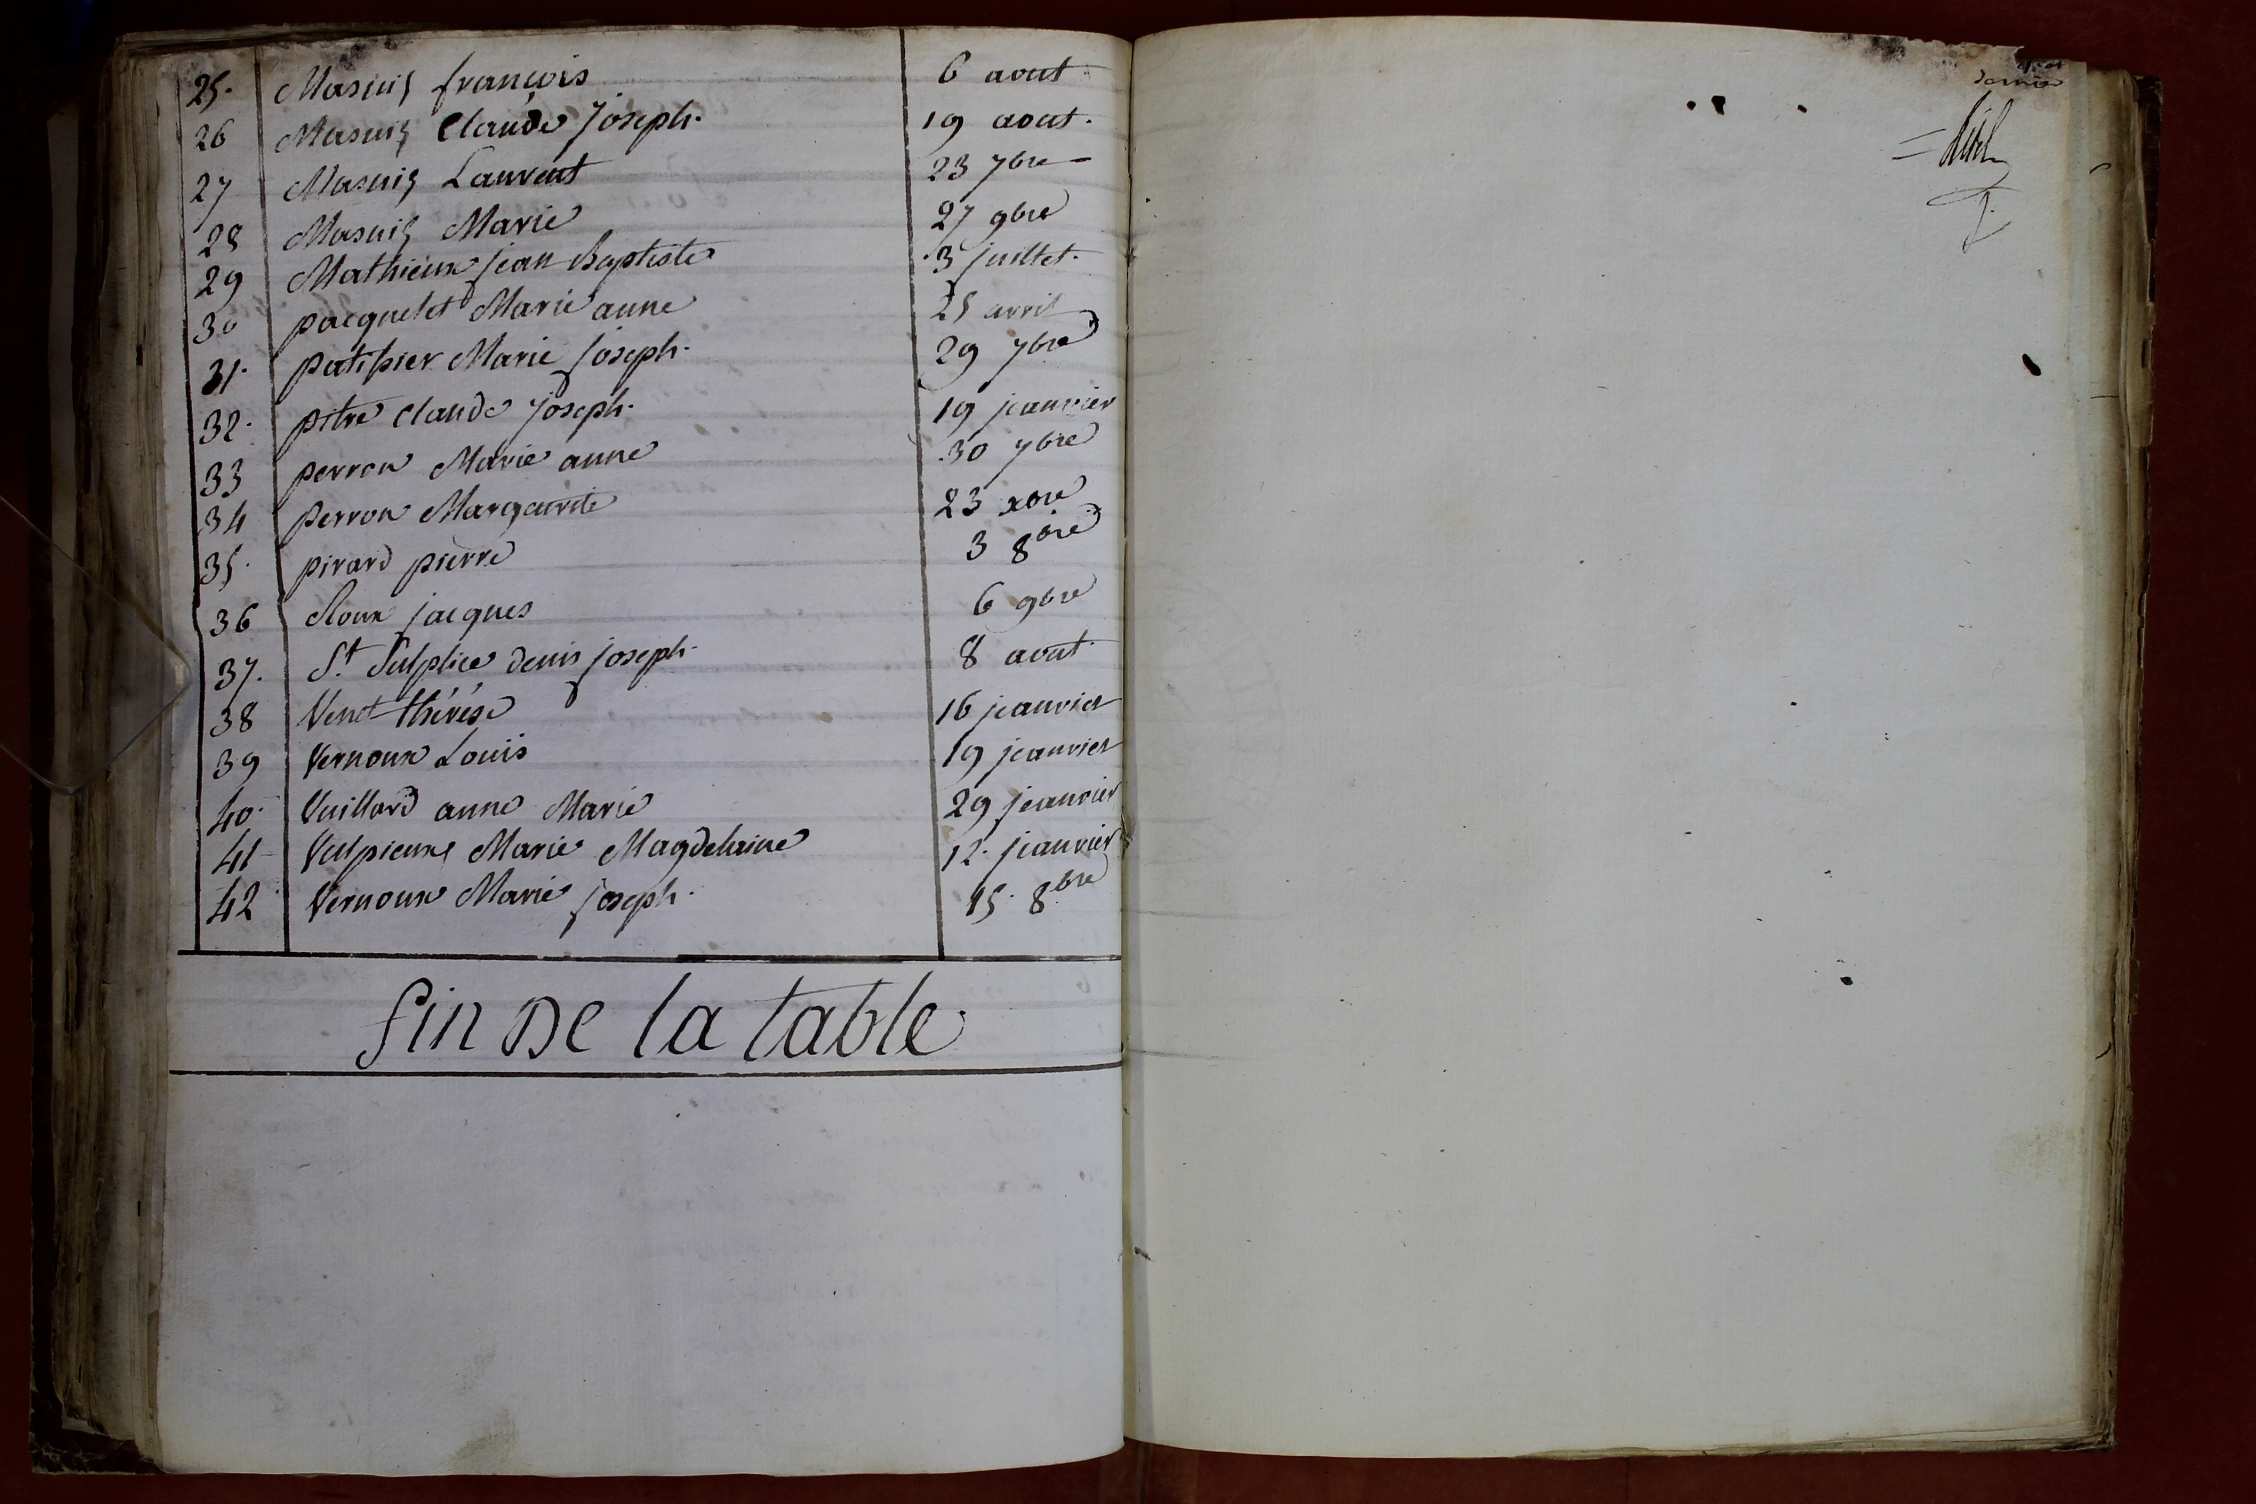 25. Masuis françois 6 aout
26 Masuis Claude Joseph. 19 aout.
27 Masuis Laurent 23 7bre
28 Masuis Marie 27 9bre
29 Mathieux jean Baptiste 3 juillet.
30 pacquetet Marie anne 25 avril
31. patissier Marie joseph. 29 7bre
32. pitre Claude joseph. 19 jeanvier
33 perron Marie anne 30 7bre
34 perron Margueritte 23 xbre
35. pirard pierre 3 8bre
36 Roux jacques 6 9bre
37. St. Sulplice denis joseph. 8 aout.
38 Venet thérése 16 jeanvier
39 Vernoux Louis 19 jeanvier
40. Vuillard anne Marie 29 jeanvier
41 Vulpieux Marie Magdelaine 12. jeanvier
42 Vernoux Marie joseph. 15. 8bre
fin De la table
dernier